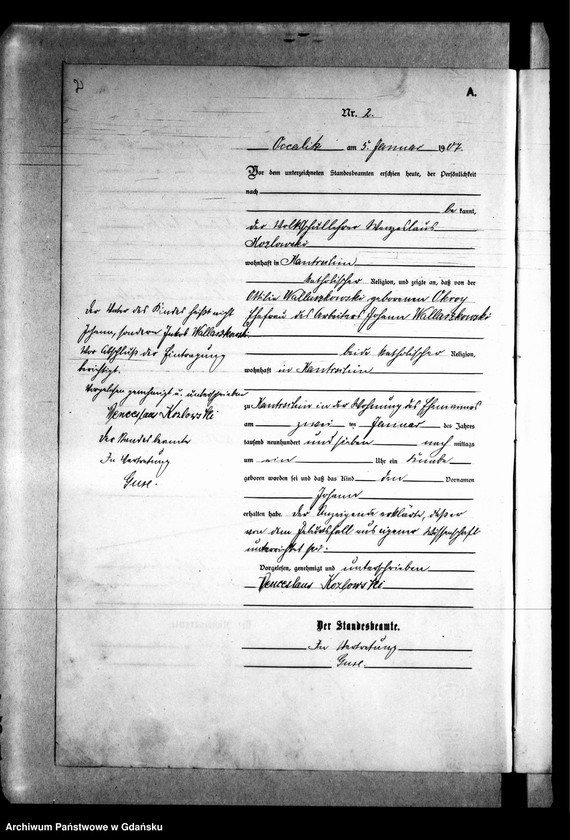 2
A.
Nr. 2.
Occalitz am 5. Januar 1907.
Vor dem unterzeichneten Standesbeamten erschien heute, der Persönlichkeit
nach
be kannt,
der Volksschullehrer Wenzeslaus
Kozlowski
wohnhaft in
katholischer Religion, und zeigte an, daß von der
Ottilie Wallaszkowski geborenen Okroy
Ehefrau des Arbeiters Johann Wallaszkowski
beide katholischer Religion,
wohnhaft in
zu in der Wohnung des Ehemannes
am zwei ten Januar des Jahres
tausend neunhundert und sieben nach mittags
um ein Uhr ein Knabe
geboren worden sei und daß das Kind den Vornamen
Johann
erhalten habe. Der Anzeigende erklärte, daß er
von dem Geburtsfall aus eigener Wissenschaft
unterrichtet sei.
Vorgelesen, genehmigt und unterschrieben
Wenceslaus Kozlowski
Der Standesbeamte.
In Vertretung
Guse
der Vater des Kindes heißt nicht
Johann, sondern Jakob Wallaszkowski.
Vor Abschluß der Eintragung
berichtigt.
Vorgelesen genehmigt u. unterschrieben
Wenceslaus Kozlowski
der Standesbeamte
In Vertretung
Guse.
Archiwum Państwowe w Gdańsku